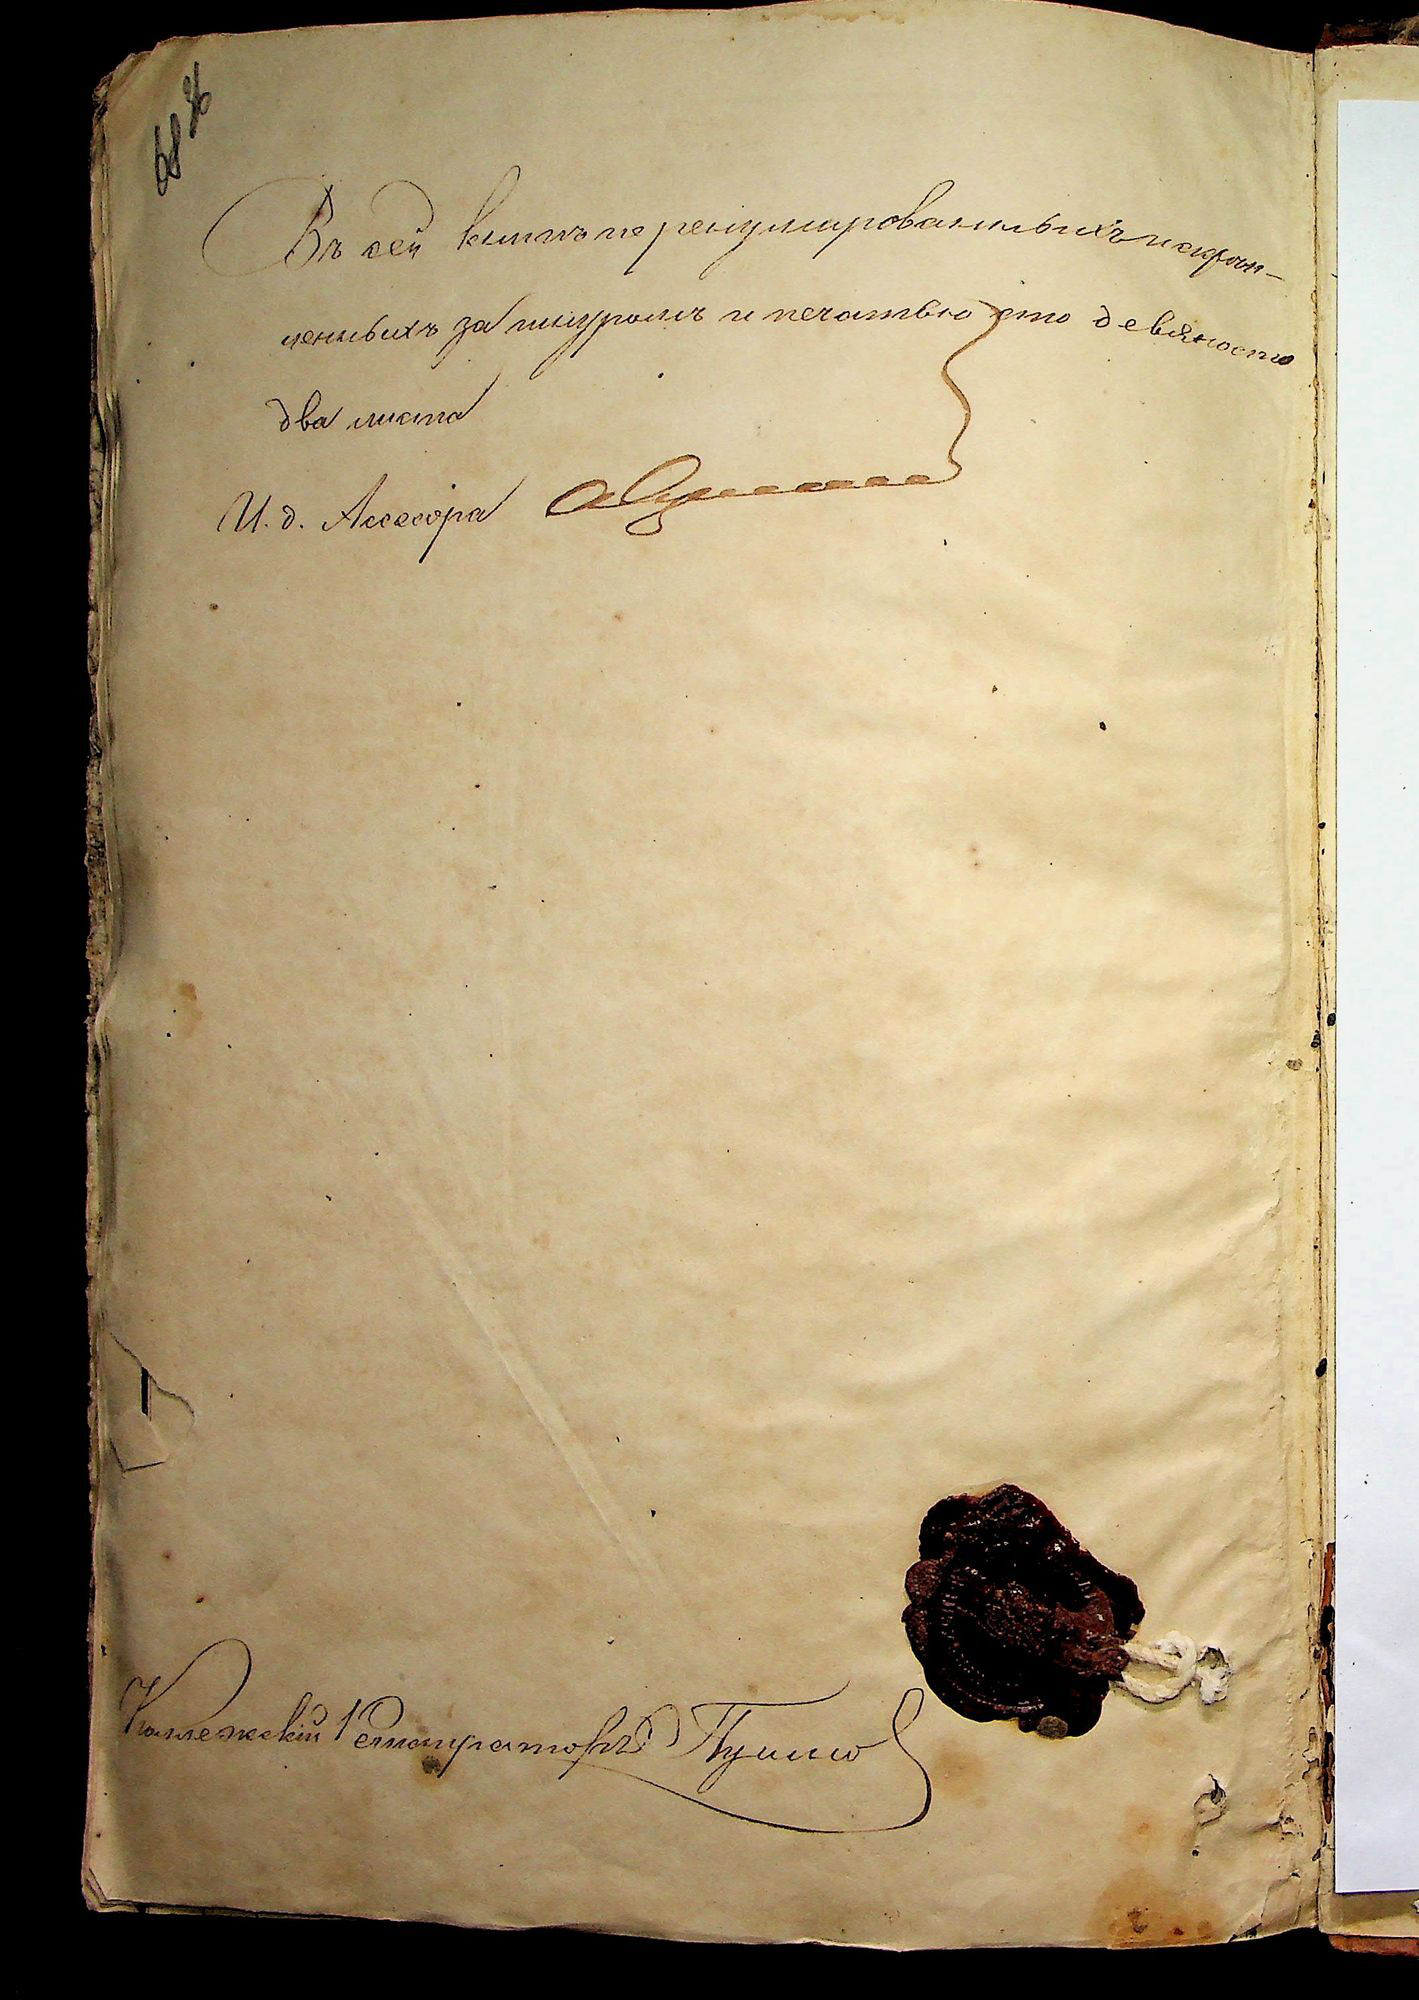 Въ сей книгѣ перенумированныхъ и скрѣп-
ленныхъ за шнуромъ и печатью сто девяносто
два листа
И. д. Асесора
Коллежскій Регистраторъ